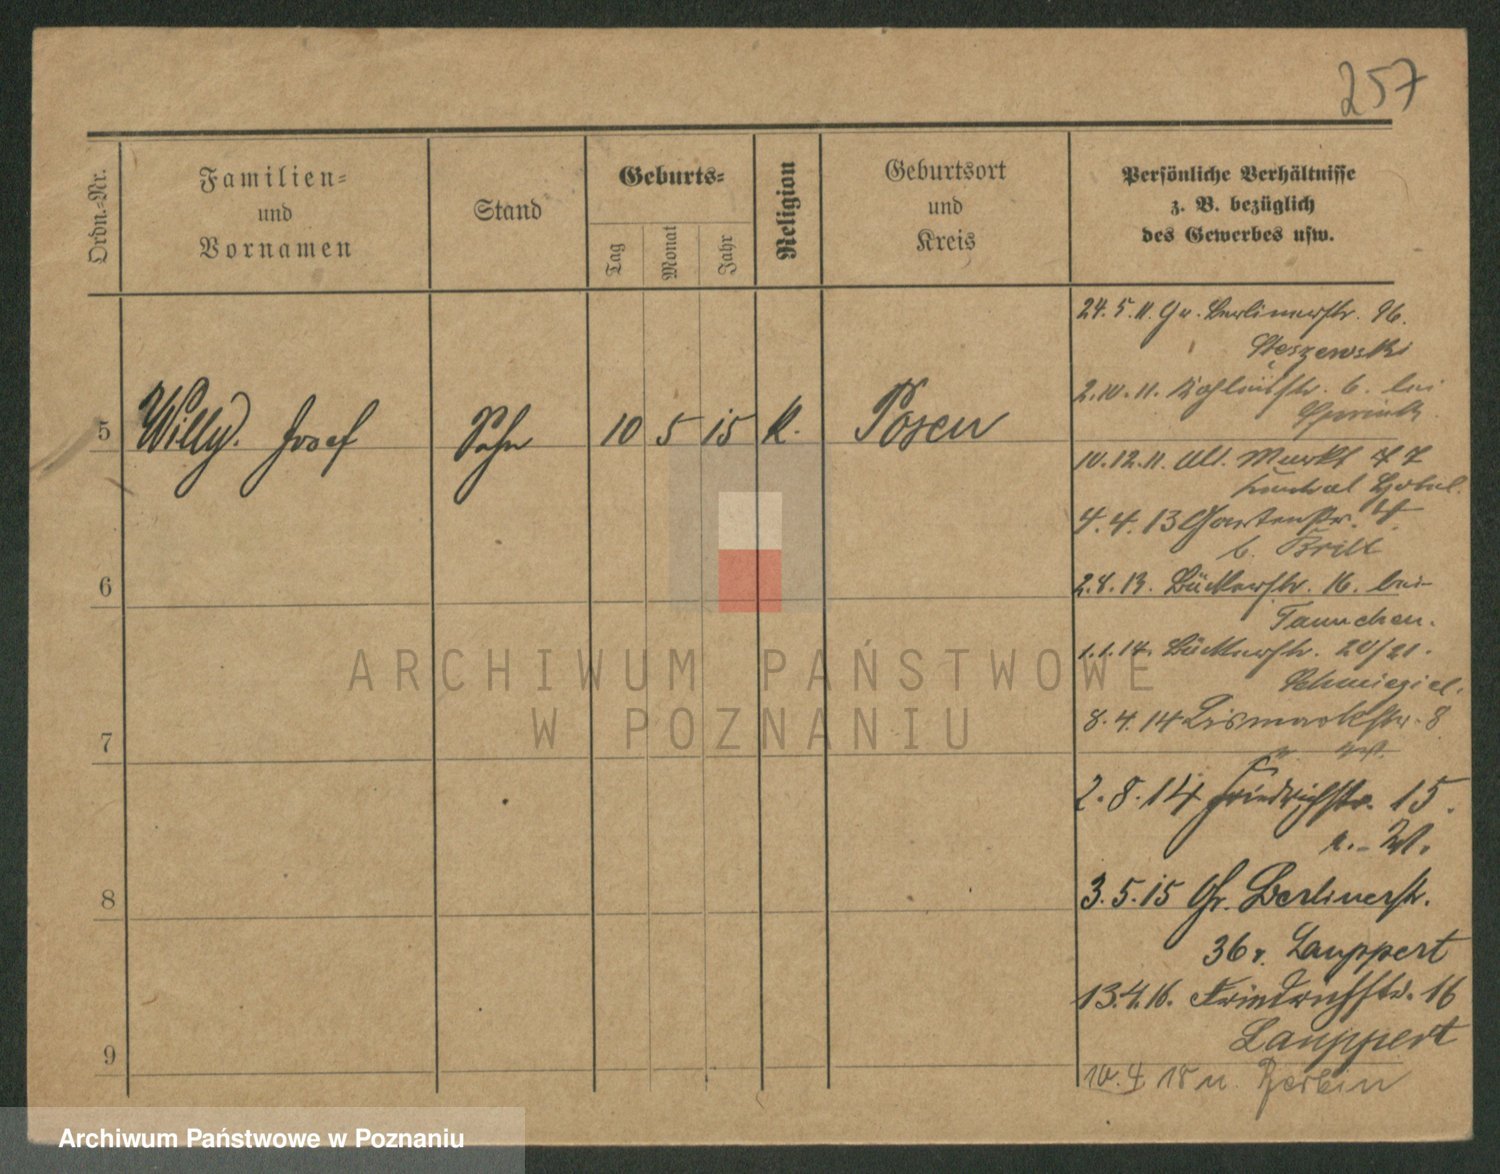 257
Ordn.-Nr.
Familien-
und
Vornamen
Stand
Geburts-
Tag
Monat
Jahr
Religion
Geburtsort
und
Kreis
Persönliche Verhältnisse
z. B. bezüglich
des Gewerbes usw.
5 Willy. Josef Sohn 10 5 15 k. Posen
6
7
8
9
24. 5. 11. Gr. Berlinerstr. 96.
Stęszewski
2. 10. 11. 6. bei
10. 12. 11. Alt. Markt 77
Hotel.
4. 4. 13 Gartenstr. 4.
b. Brill
2. 8. 13. Büttelstr. 16. bei
Taunchen.
1. 1. 14. Büttelstr. 20/21.
Schmiegiel.
8. 4. 14 Bismarckstr. 8
2. 8. 14 Friedrichstr. 15.
3. 5. 15 Gr. Berlinerstr.
36 Lauppert
13. 4. 16. Friedrichstr. 16
Lauppert
10. 4. 18 n. Berlin
ARCHIWUM PAŃSTWOWE
W POZNANIU
Archiwum Państwowe w Poznaniu